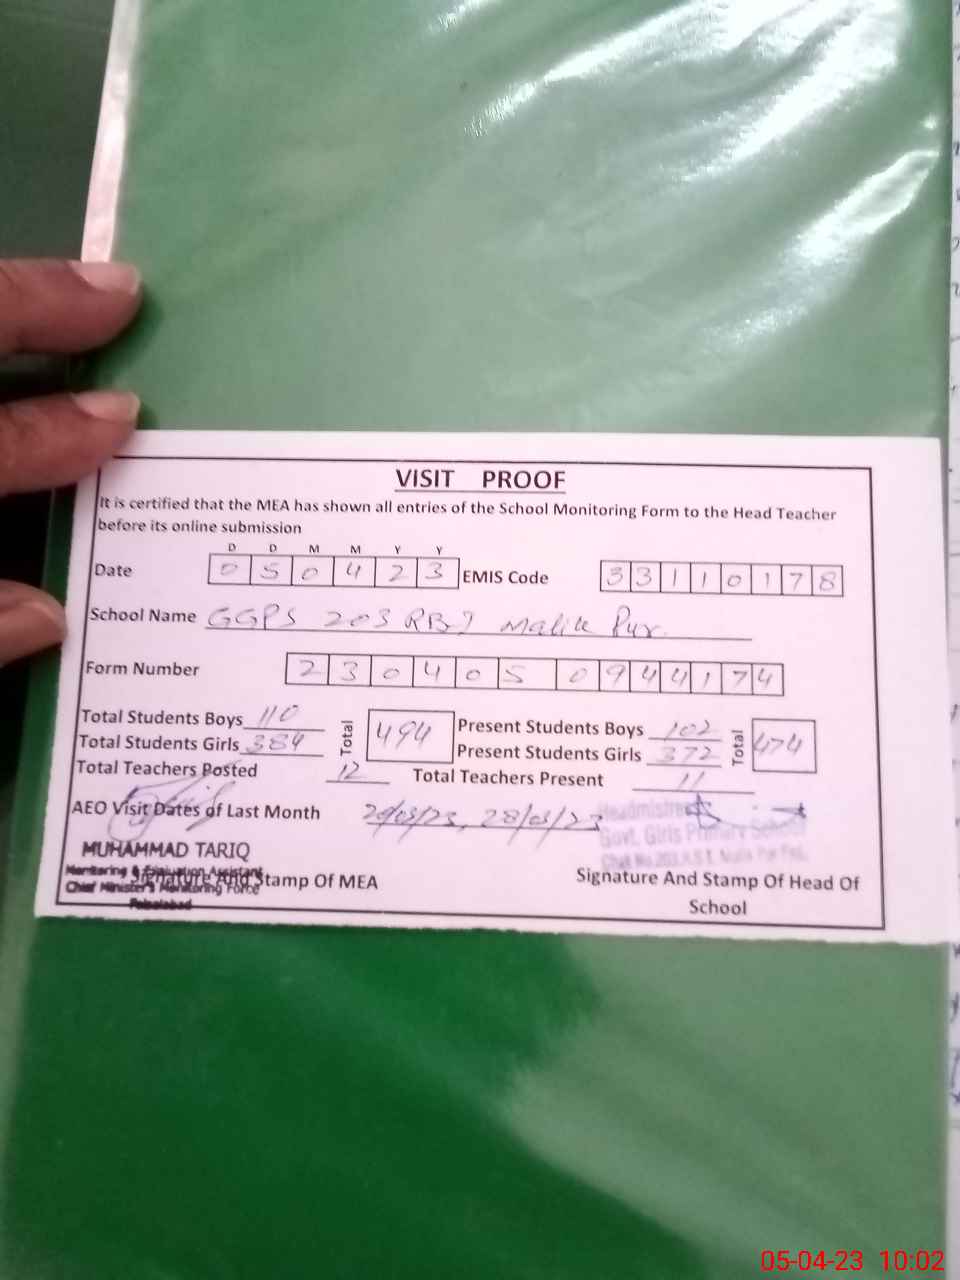 VISIT PROOF
It is certified that the MEA has shown all entries of the School Monitoring Form to the Head Teacher
before its online submission
D D M M Y Y
Date 0 5 0 4 2 3 EMIS Code 3 3 1 1 0 1 7 8
School Name GGPS 203 RB I Malik Pur
Form Number 2 3 0 4 0 5 0 9 4 4 1 7 4
Total Students Boys 110 Total 494 Present Students Boys 102 Total 474
Total Students Girls 384 Present Students Girls 372
Total Teachers Posted 12 Total Teachers Present 11
AEO Visit Dates of Last Month 20/03/23, 28/03/23
Headmistress
Govt. Girls Primary School
MUHAMMAD TARIQ
Monitoring & Evaluation Assistant
Chief Minister's Monitoring Force
Faisalabad
Signature And Stamp Of MEA
Signature And Stamp Of Head Of
School
05-04-23 10:02